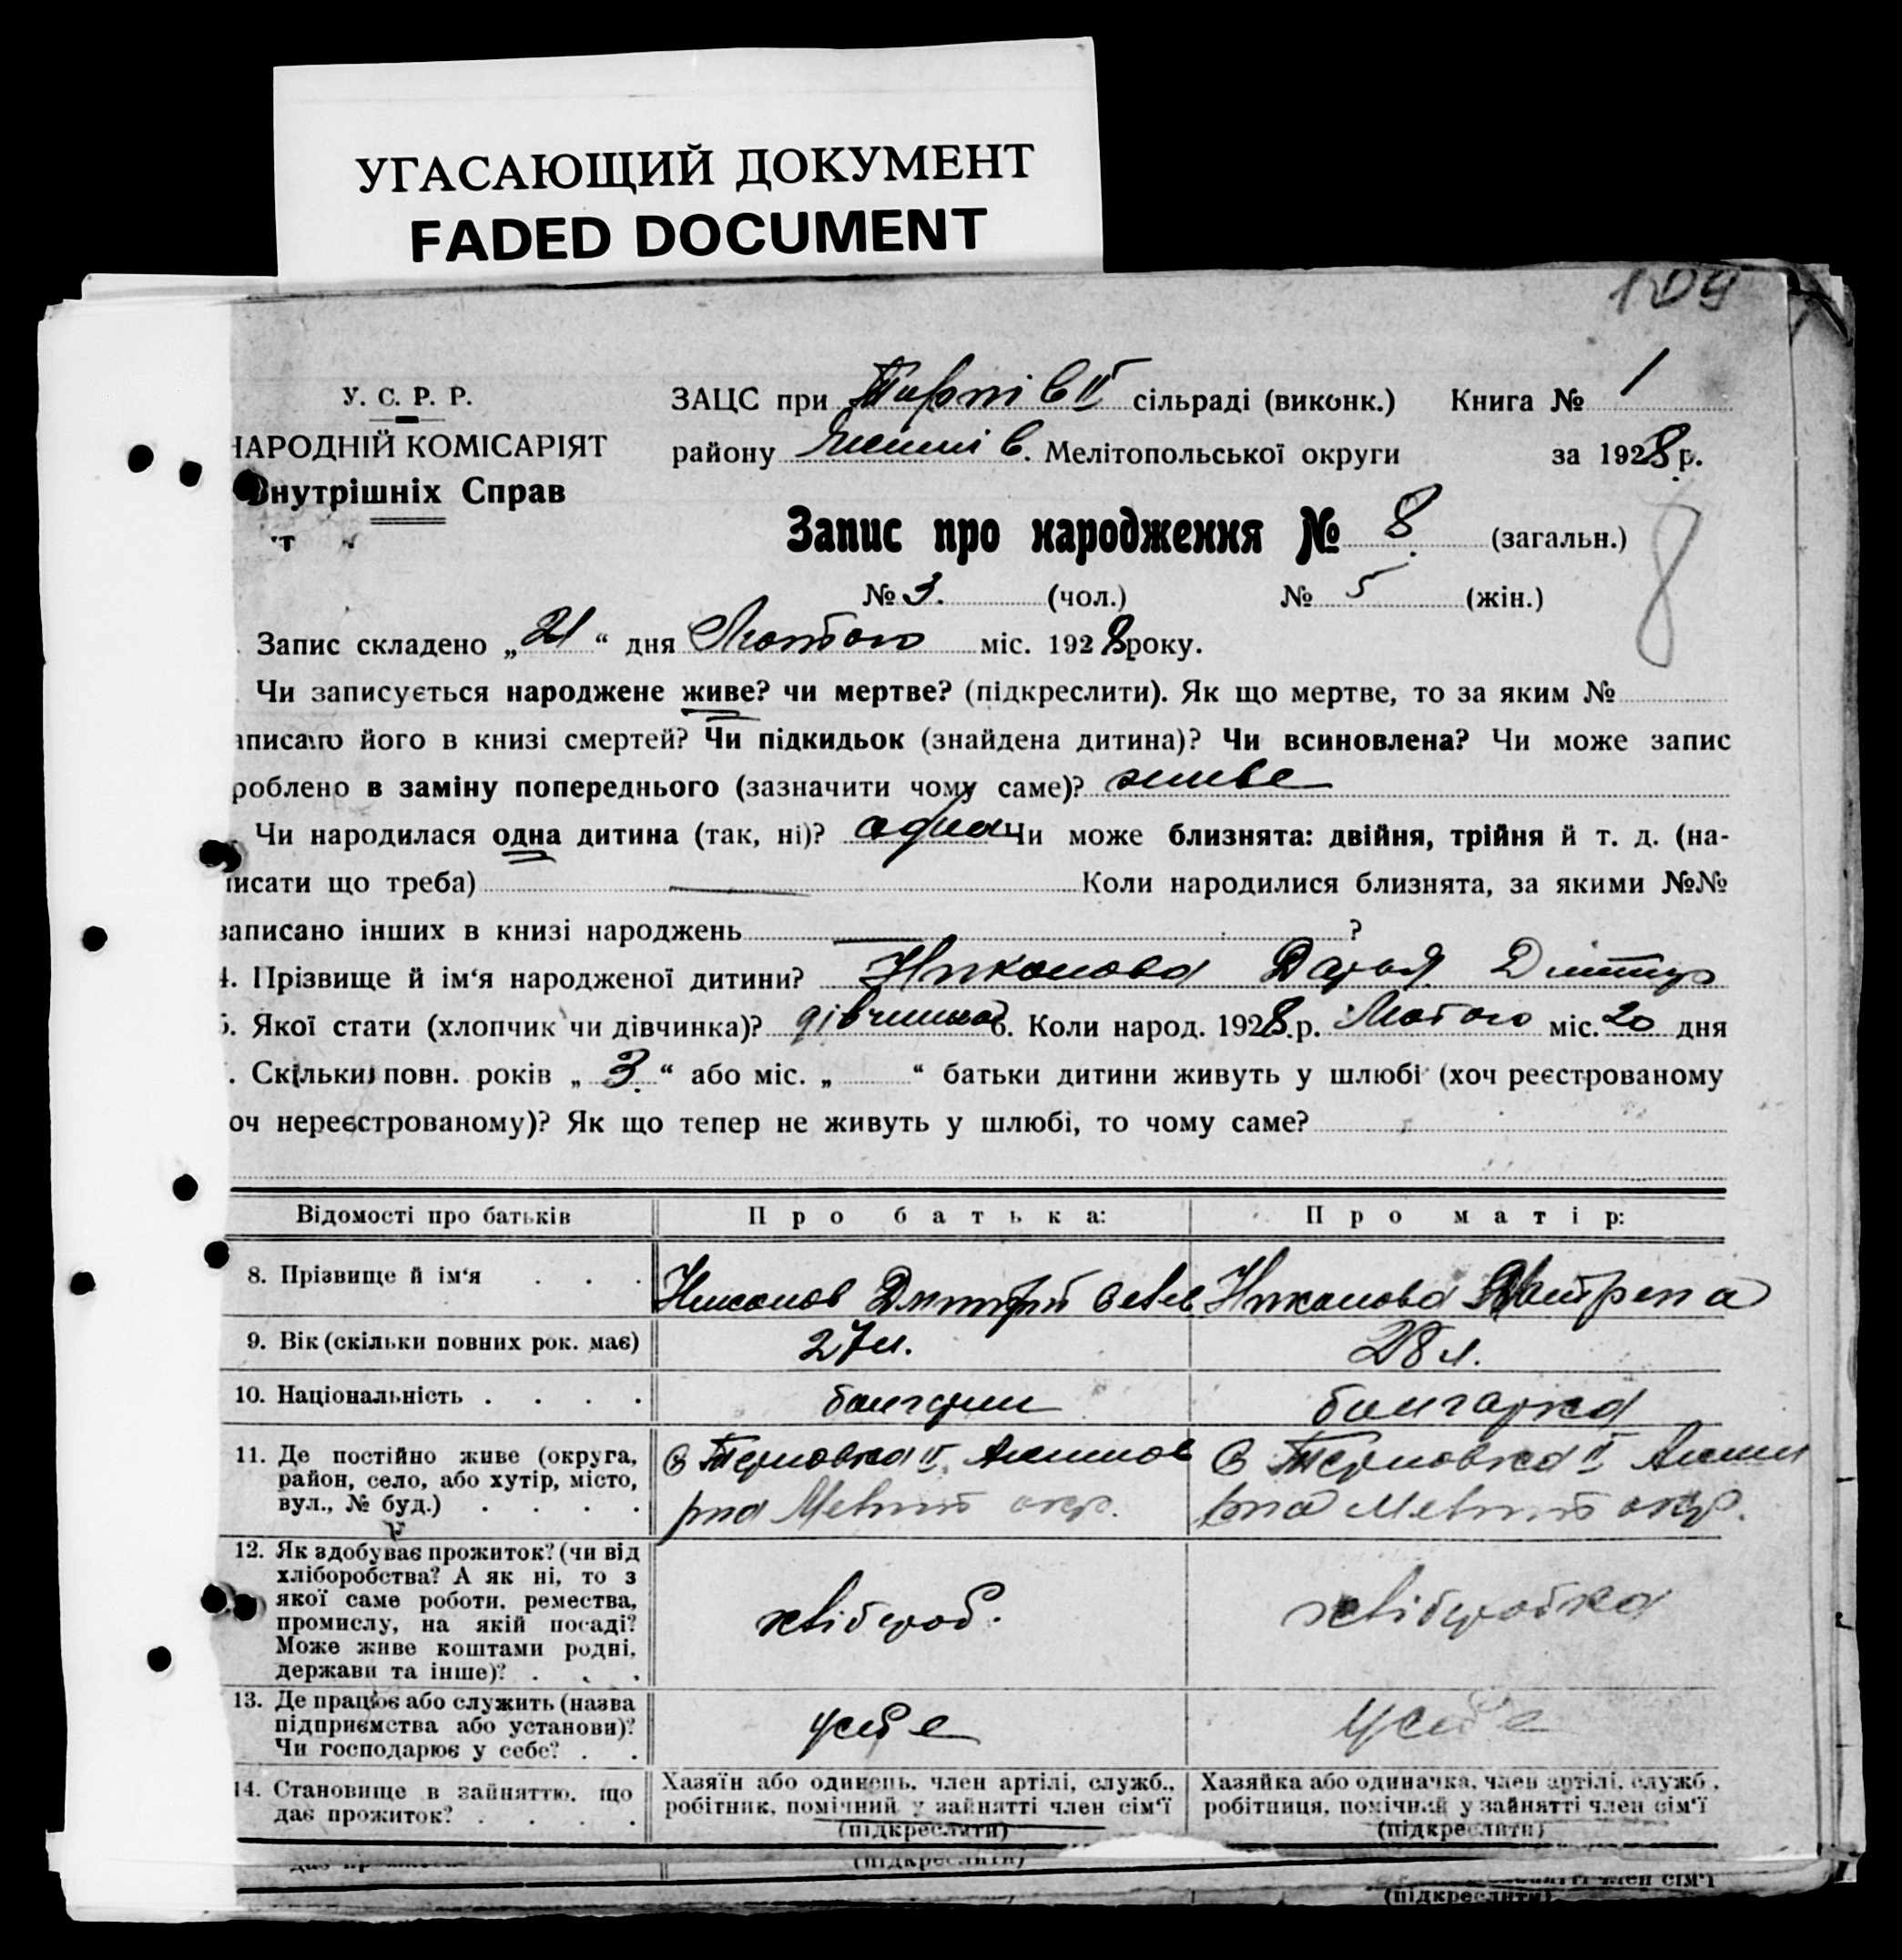 УГАСАЮЩИЙ ДОКУМЕНТ
FADED DOCUMENT
109
У. С. Р. Р.
НАРОДНІЙ КОМІСАРІЯТ
Внутрішніх Справ
ЗАЦС при сільраді (виконк.) Книга № 1
району Мелітопольської округи за 1928 р.
Запис про народження № 8 (загальн.)
№ 3. (чол.) № 5 (жін.)
8
Запис складено „21“ дня Лютого міс. 1928 року.
Чи записується народжене живе? чи мертве? (підкреслити). Як що мертве, то за яким №
аписано його в книзі смертей? Чи підкидьок (знайдена дитина)? Чи всиновлена? Чи може запис
роблено в заміну попереднього (зазначити чому саме)? живе
Чи народилася одна дитина (так, ні)? одна Чи може близнята: двійня, трійня й т. д. (на-
писати що треба) Коли народилися близнята, за якими №№
записано інших в книзі народжень ?
4. Прізвище й ім‘я народженої дитини? Никонова Дарья Дмитр
5. Якої статі (хлопчик чи дівчинка)? дівчинка 6. Коли народ. 1928 р. Лютого міс. 20 дня
. Скільки повн. років „3.“ або міс. „ “ батьки дитини живуть у шлюбі (хоч реєстрованому
оч нереєстрованому)? Як що тепер не живуть у шлюбі, то чому саме?
Відомості про батьків Про батька: Про матір:
8. Прізвище й ім‘я . . . Никонов Дмитрий Никонова
9. Вік (скільки повних рок. має) 27 л. 28 л.
10. Національність . . . . болгарин болгарка
11. Де постійно живе (округа, С Терновка II Акимов С Терновка II Аким
район, село, або хутір, місто,
вул., № буд.) . . . . рна Меліт окр. рна Меліт окр.
12. Як здобуває прожиток? (чи від
хліборобства? А як ні, то з
якої саме роботи, ремества, хлібороб. хліборобка
промислу, на якій посаді?
Може живе коштами родні,
держави та інше)? . . .
13. Де працює або служить (назва
підприємства або установи)? у себе у себе
Чи господарює у себе? . .
14. Становище в зайняттю, що Хазяїн або одинець, член артілі, служб., Хазяйка або одиначка, член артілі, служб.,
дає прожиток? . . . . робітник, помічний у зайнятті член сім‘ї робітниця, помічний у зайнятті член сім‘ї
(підкреслити) (підкреслити)
(підкреслити)
член сім‘ї
(підкреслити)